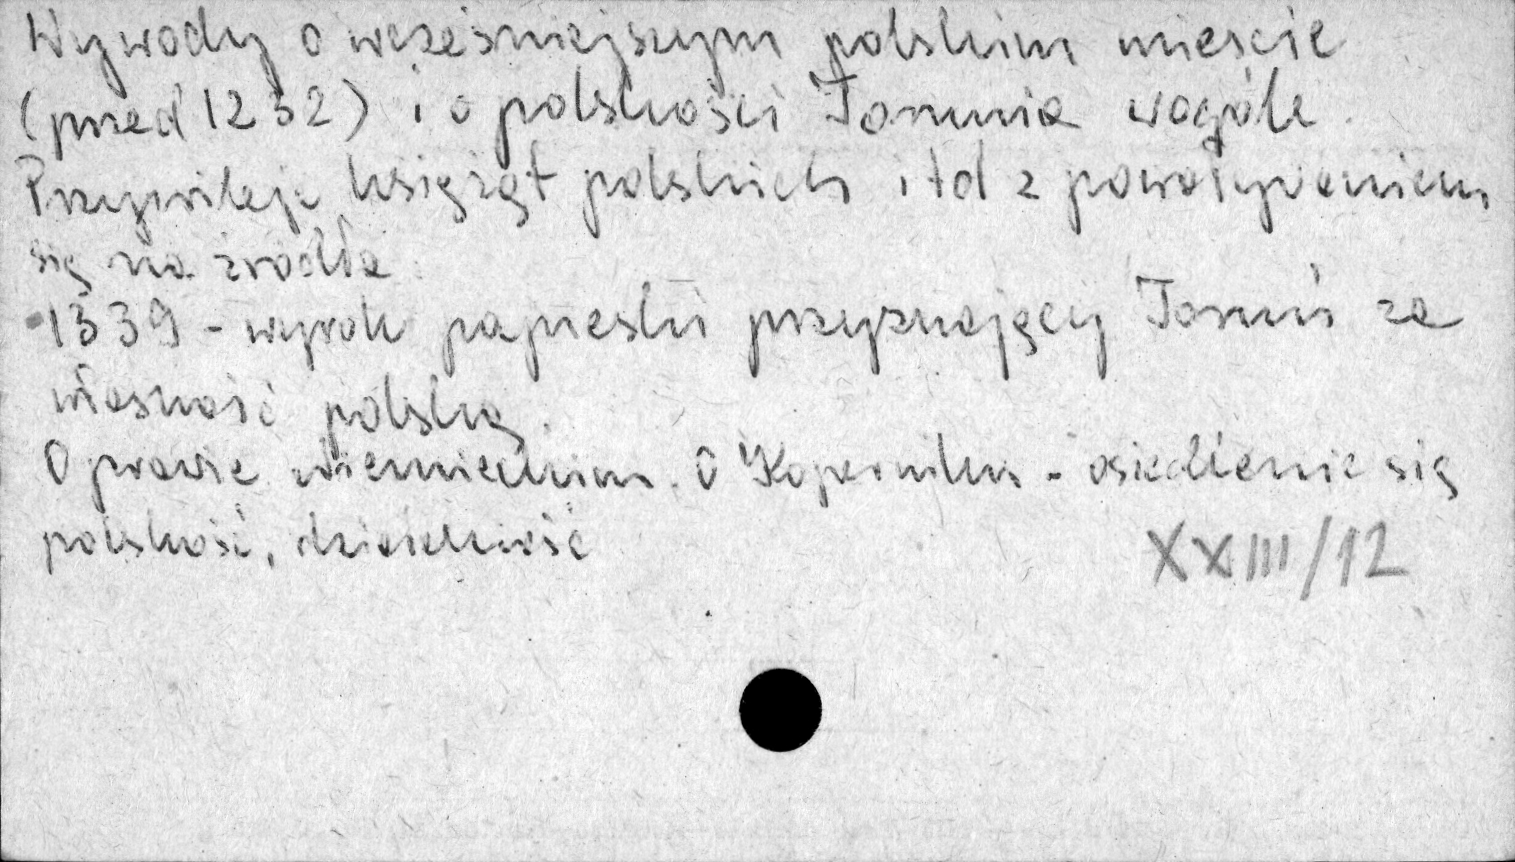 Wywody o wcześniejszym polskim mieście
(przed 1232) i o polskości Torunia wogóle.
Przywileje książąt polskich itd z powoływaniem
się na źródła.
1339 - wyrok papieski przyznający Toruń za
własność polską.
O prawie niemieckim. O Koperniku - osiedlenie się
polskość,
XXIII/12